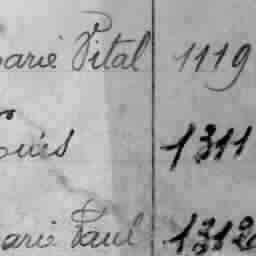 arie Vital 1119
ouis 1311
arie Paul 1312